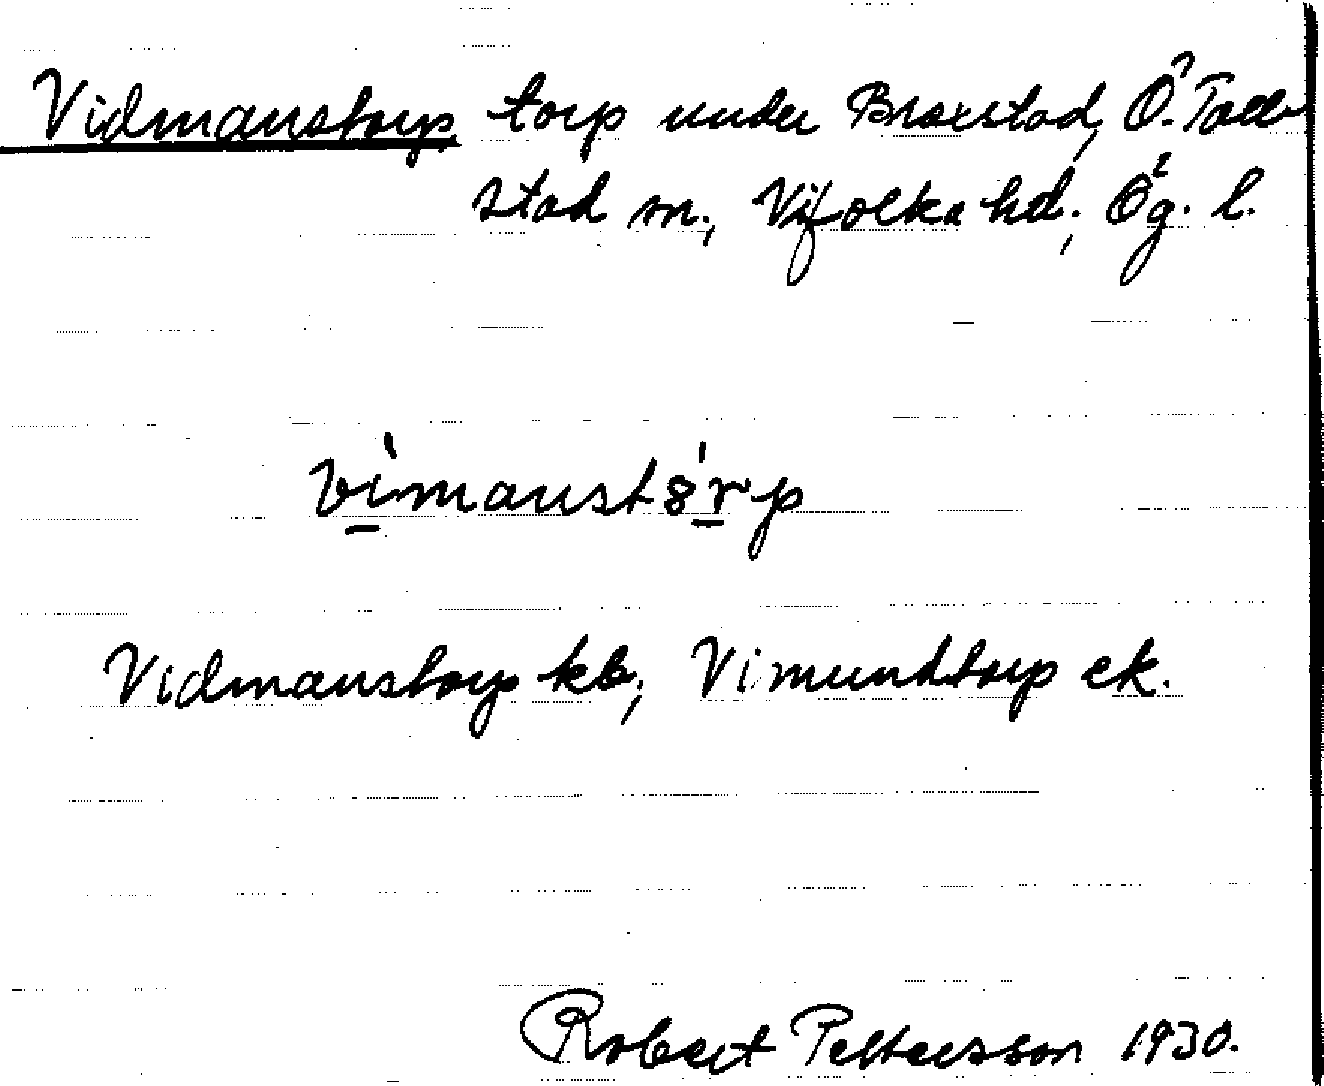 Vidmanstorp torp under Braxstad, Ö. Tolle
stad sn., Vifolka hd., Ög. l.
vìmanstȣ́rp
Vidmanstorp kb., Vimundtorp ek.
Robert Pettersson 1930.